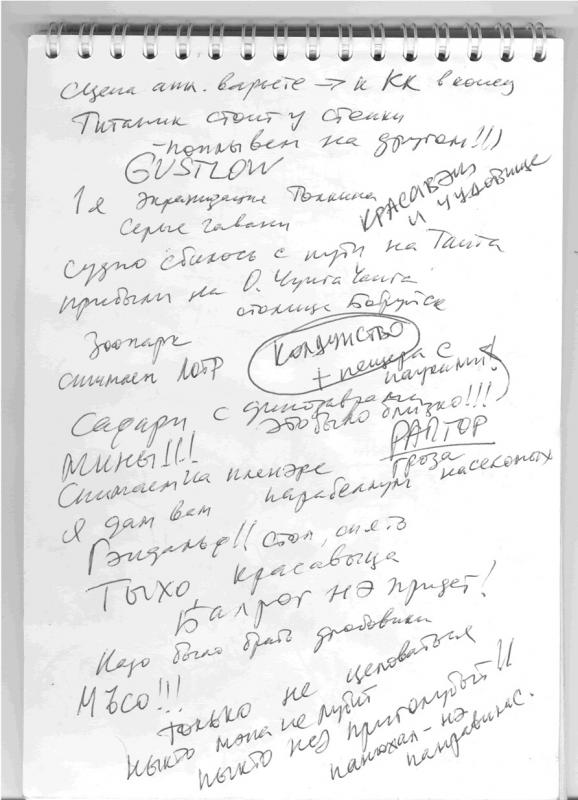 Сцена англ. варьете → к КК в конец
Титаник стоит у стенки
-поплывем на другом!!!)
GUSTLOW
1я экранизация Толкина
Серые Гавани
КРАСАВЭЦ
И ЧУДОВИЩЕ
Судно сбилось с пути на Таити
прибыли на О. Чунга Чанга
столица Бобруйск
Зоопарк
снимаем ЛОТР
КОЛДУНСТВО
+ пещера с
пауками!
Сафари с динозаврами
это было близко!!!
МИНЫ!!!
РАПТОР
гроза
насекомых
Снимаем на пленэре
Я дам вам парабеллум
Гэндальф!! стоп, снято
ТЫХО красавыца
Балрог нэ придет!
Надо было брать дробовики
МЪСО!!!
только не целоваться
ныкто мэна не лубит
ныкто нэ приголубыт!!
панюхал - нэ
панравилас.